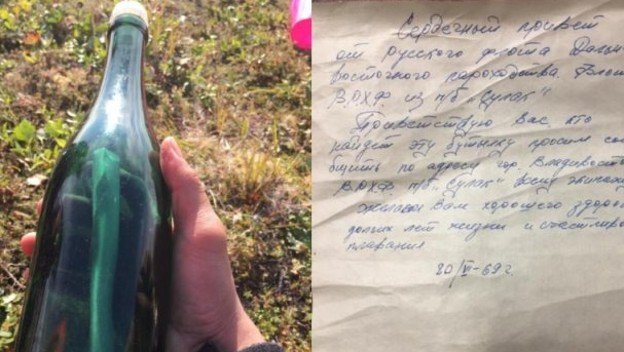 Сердечный привет
от Русского флота Дальне
восточного пароходства
ВРХФ из п/б „Сулак"
Приветствую Вас кто
найдет эту бутылку просим соо
бщить по адресу гор Владивосто
ВРХФ п/б „Сулак" всему экипажу
желаю Вам хорошего здоро
долгих лет жизни и счастливо
плавания
20/VI-69 г.